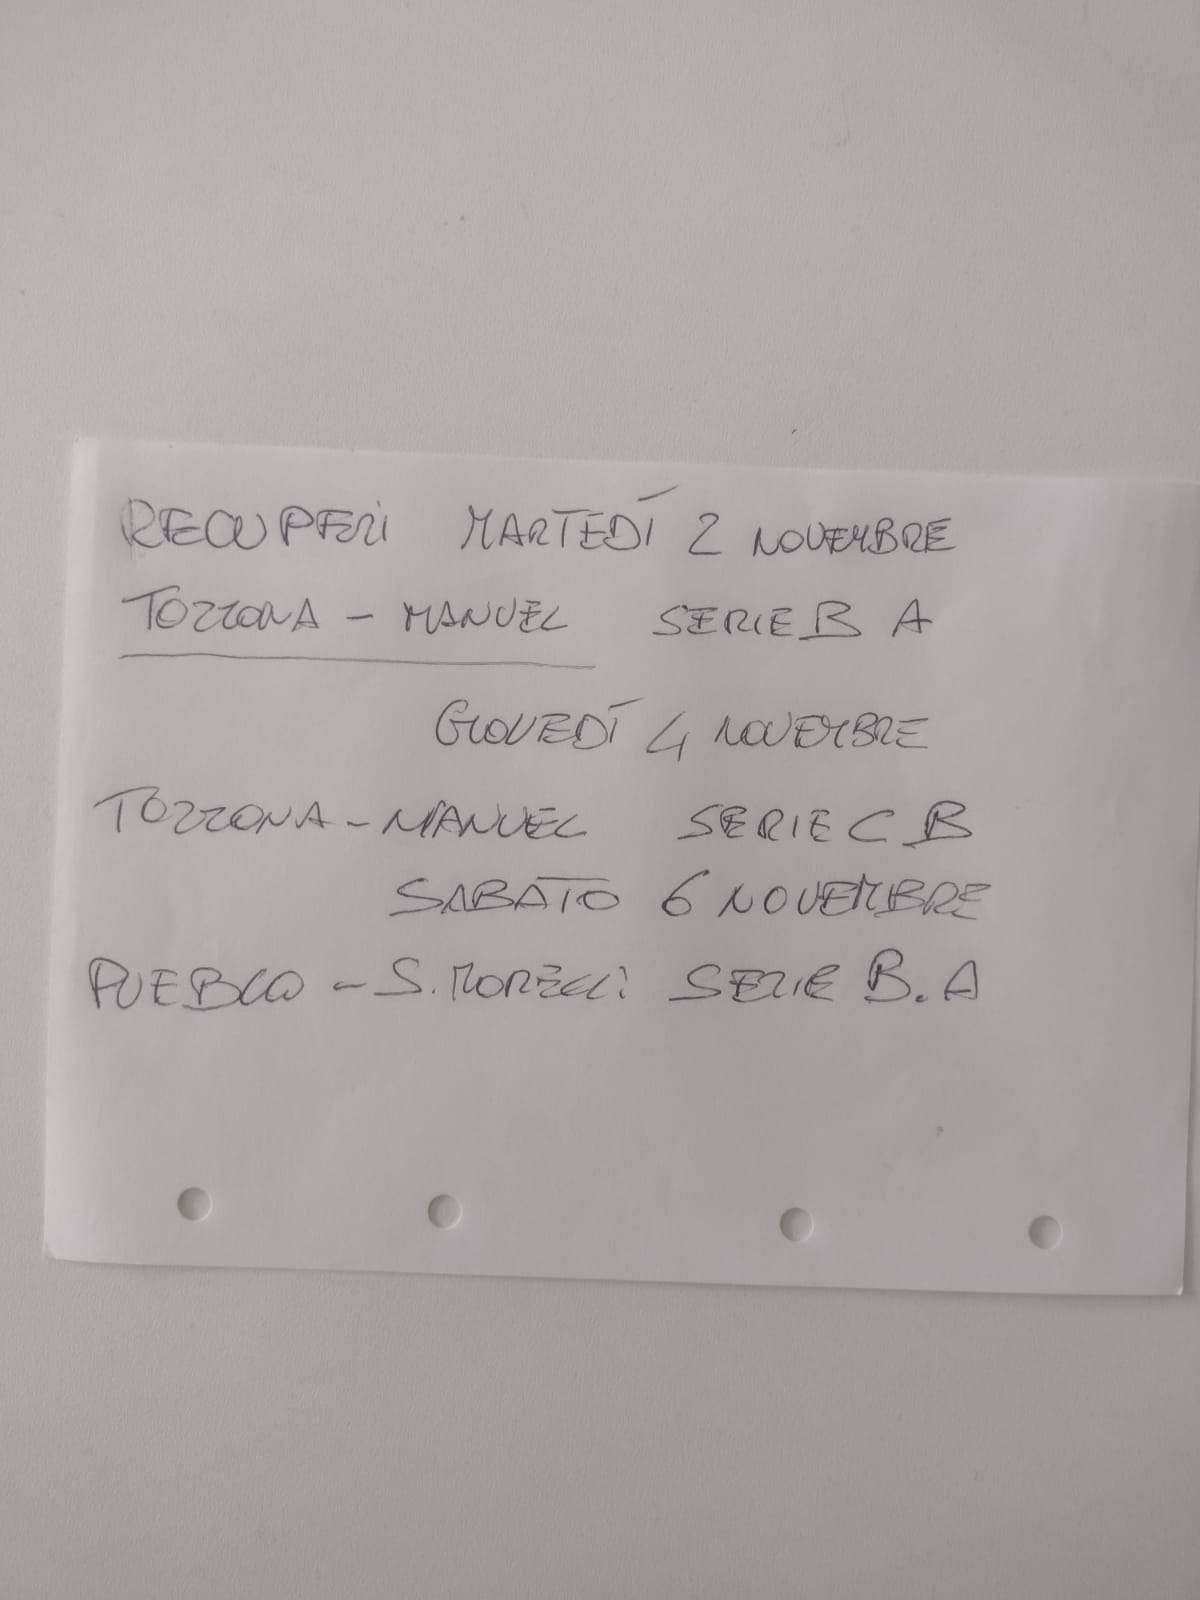 RECUPERI MARTEDÍ 2 NOVEMBRE
TOZZONA - MANUEL SERIE B A
GIOVEDÍ 4 NOVEMBRE
TOZZONA - MANUEL SERIE C B
SABATO 6 NOVEMBRE
PUEBLO - S. MORELLI SERIE B. A